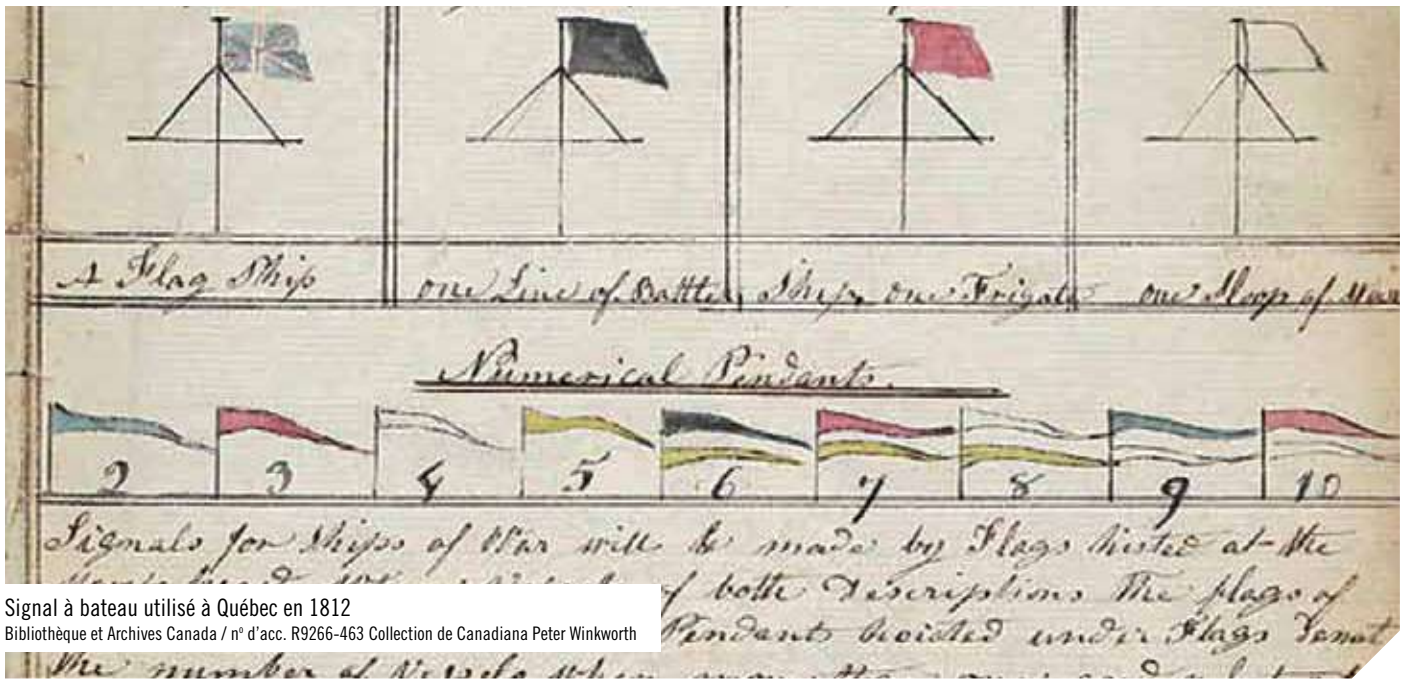 A Flag Ship
one Line of Battle Ship
one Frigate
one Sloop of War
Numerical Pendants.
2 3 4 5 6 7 8 9 10
Signals for Ships of War will be made by Flags histed at the
of both Descriptions The flags of
Pendants hoisted under Flags Denot
the number of Vessels when more than one
Signal à bateau utilisé à Québec en 1812
Bibliothèque et Archives Canada / nº d’acc. R9266-463 Collection de Canadiana Peter Winkworth